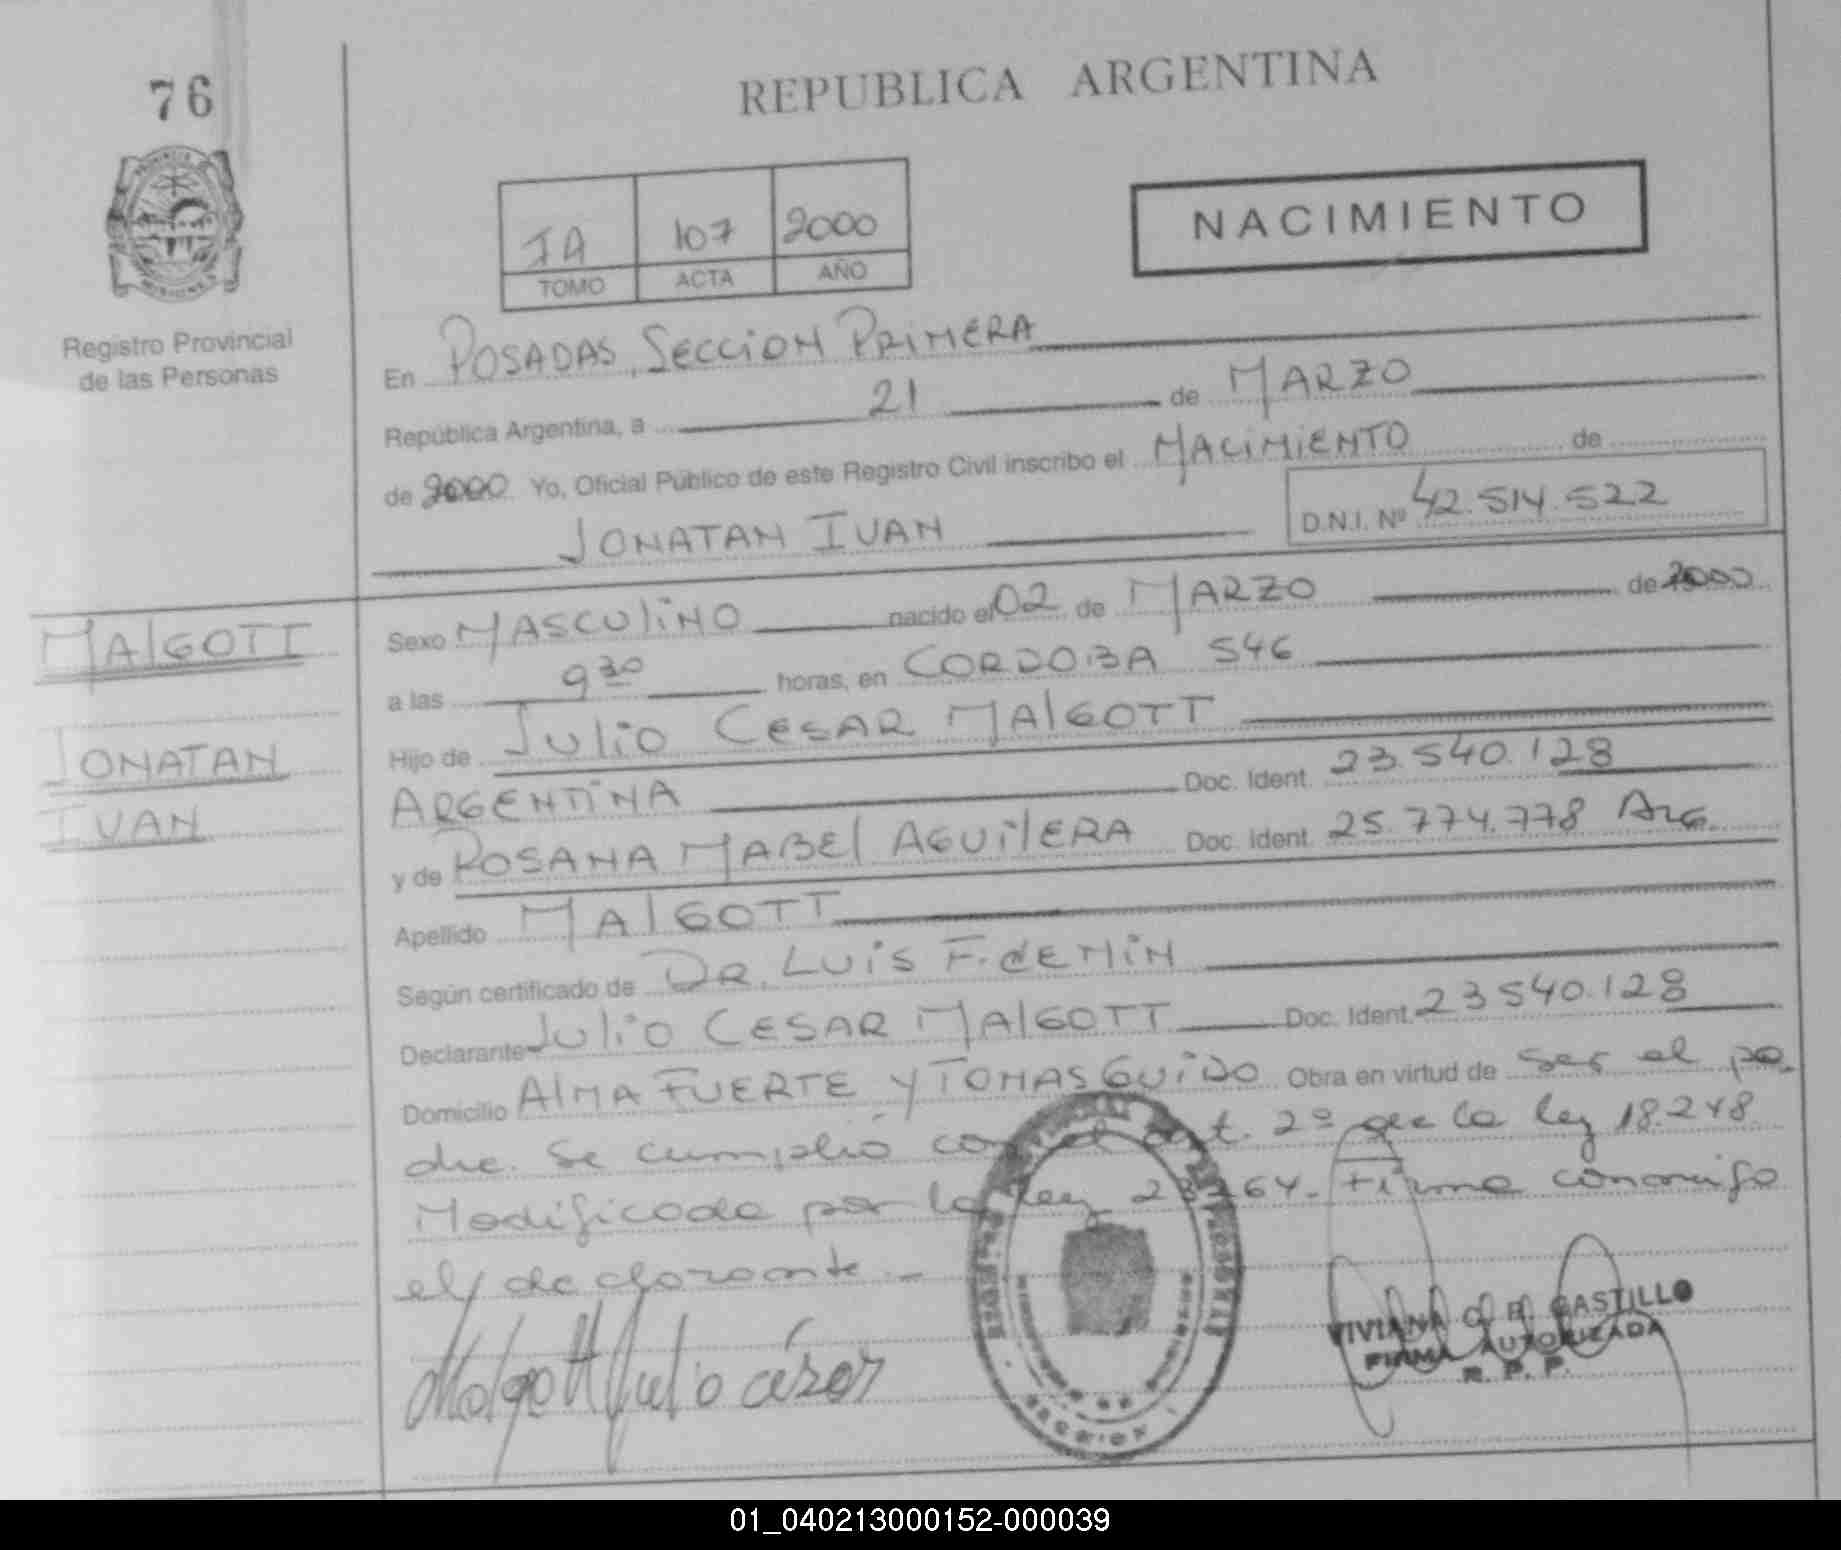 76
REPUBLICA ARGENTINA
PROVINCIA DE MISIONES
Registro Provincial
de las Personas
IA 107 2000
TOMO ACTA AÑO
NACIMIENTO
En POSADAS, SECCION PRIMERA
República Argentina, a 21 de MARZO
de 2000 Yo, Oficial Público de este Registro Civil inscribo el NACIMIENTO de
JONATAN IVAN D.N.I. Nº 42.514.522
MALGOTT
JONATAN
IVAN
Sexo MASCULINO nacido el 02 de MARZO de 2000
a las 9 30 horas, en CORDOBA 546
Hijo de JULIO CESAR MALGOTT
ARGENTINA Doc. Ident. 23.540.128
y de ROSANA MABEL AGUILERA Doc. Ident. 25.774.778 ARG.
Apellido MALGOTT
Según certificado de DR. LUIS F.
Declarante JULIO CESAR MALGOTT Doc. Ident. 23540.128
Domicilio ALMA FUERTE Y TOMAS GUIDO Obra en virtud de ser el pa
dre. Se cumplió con el art. 2º de la ley 18.248
Modificada por la ley Firma conmigo
el declarante.-
Malgott Julio césar
VIVIANA CASTILLO
FIRMA AUTORIZADA
R. P. P.
01_040213000152-000039